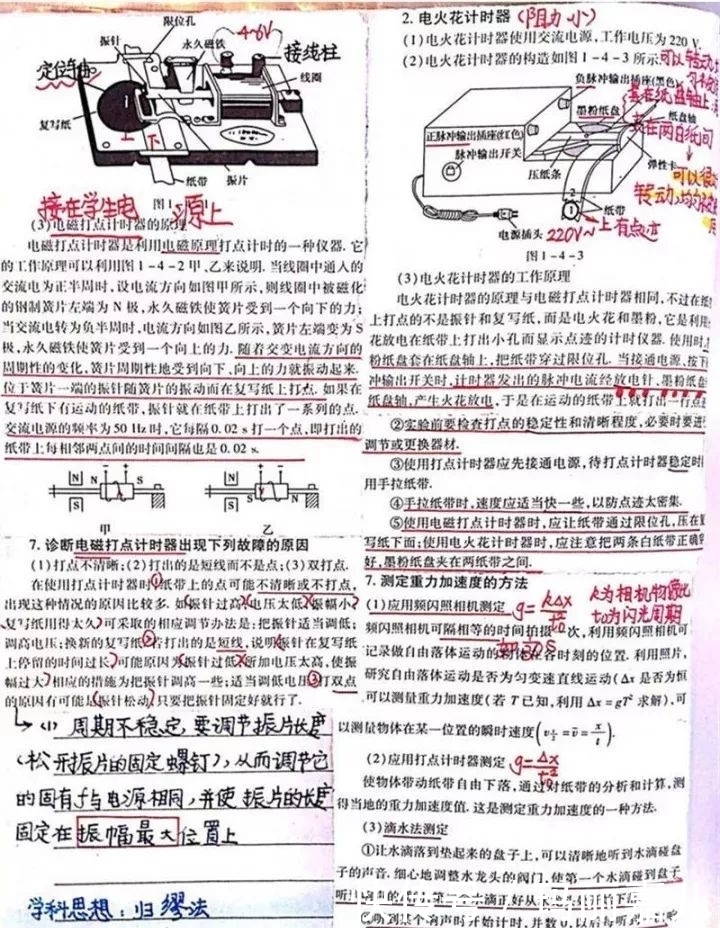 限位孔
振针
永久磁铁
4-6V
接线柱
定位轴
线圈
复写纸
上 下
纸带
振片
接在学生电源上
图1
(3)电磁打点计时器的原理
电磁打点计时器是利用电磁原理打点计时的一种仪器.它
的工作原理可以利用图1-4-2甲、乙来说明.当线圈中通入的
交流电为正半周时,设电流方向如图甲所示,则线圈中被磁化
的钢制簧片左端为N极,永久磁铁使簧片受到一个向下的力;
当交流电转为负半周时,电流方向如图乙所示,簧片左端变为S
极,永久磁铁使簧片受到一个向上的力.随着交变电流方向的
周期性的变化,簧片周期性地受到向下、向上的力就振动起来.
位于簧片一端的振针随簧片的振动而在复写纸上打点.如果在
复写纸下有运动的纸带,振针就在纸带上打出了一系列的点.
交流电源的频率为50 Hz时,它每隔0.02 s打一个点,即打出的
纸带上每相邻两点间的时间间隔也是0.02 s.
N S - +
N S + -
甲 乙
7.诊断电磁打点计时器出现下列故障的原因
(1)打点不清晰;(2)打出的是短线而不是点;(3)双打点.
在使用打点计时器时①纸带上的点可能不清晰或不打点,
出现这种情况的原因比较多.如(振针过高)(电压太低)(振幅小)
(复写纸用得太久)可采取的相应调节办法是:把振针适当调低;
调高电压;换新的复写纸②若打出的是短线,说明(振针在复写纸
上停留的时间过长)可能原因为(振针过低)(所加电压太高,使振
幅过大)相应的措施为把振针调高一些;适当调低电压③打双点
的原因有可能是(振针松动)只要把振针固定好就行了.
(1) 周期不稳定,要调节振片长度
(松开振片的固定螺钉),从而调节它
的固有f与电源相同,并使振片的长度
固定在振幅最大位置上
学科思想:归缪法
2.电火花计时器(阻力小)
(1)电火花计时器使用交流电源,工作电压为220 V.
(2)电火花计时器的构造如图1-4-3所示.
负脉冲输出插座(黑色)
墨粉纸盘
套在纸盘轴上
纸盘轴
正脉冲输出插座(红色)
夹在两白纸间
脉冲输出开关
弹性卡
压纸条
可以很
转动,均匀
纸带
电源插头
220V~
上有点迹
图1-4-3
(3)电火花计时器的工作原理
电火花计时器的原理与电磁打点计时器相同,不过在纸
上打点的不是振针和复写纸,而是电火花和墨粉,它是利用
花放电在纸带上打出小孔而显示点迹的计时仪器.使用时,
粉纸盘套在纸盘轴上,把纸带穿过限位孔.当接通电源、按下
冲输出开关时,计时器发出的脉冲电流经放电针、墨粉纸盘
纸盘轴,产生火花放电,于是在运动的纸带上就打出一行点
②实验前要检查打点的稳定性和清晰程度,必要时要进
调节或更换器材.
③使用打点计时器应先接通电源,待打点计时器稳定时
用手拉纸带.
④手拉纸带时,速度应适当快一些,以防点迹太密集.
⑤使用电磁打点计时器时,应让纸带通过限位孔,压在
写纸下面;使用电火花计时器时,应注意把两条白纸带正确
好,墨粉纸盘夹在两纸带之间.
7.测定重力加速度的方法
k为相机物像比
(1)应用频闪照相机测定 g=kΔx/t₀²
t₀为闪光周期
频闪照相机可隔相等的时间拍摄 次,利用频闪照相机可
记录做自由落体运动的 在各时刻的位置.利用照片,
研究自由落体运动是否为匀变速直线运动(Δx是否为恒
可以测量重力加速度(若T已知,利用Δx=gT²求解),可
以测量物体在某一位置的瞬时速度(v_{t/2}=v̄=x/t).
(2)应用打点计时器测定 g=Δx/t₀²
使物体带动纸带自由下落,通过对纸带的分析和计算,测
得当地的重力加速度值.这是测定重力加速度的一种方法.
(3)滴水法测定
①让水滴落到垫起来的盘子上,可以清晰地听到水滴碰盘
子的声音.细心地调整水龙头的阀门,使第一个水滴碰到盘子